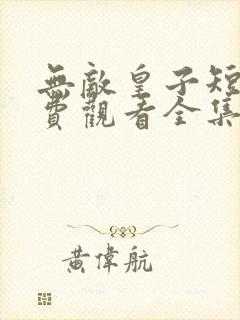 無敵皇子短
費觀看全集
黃偉航